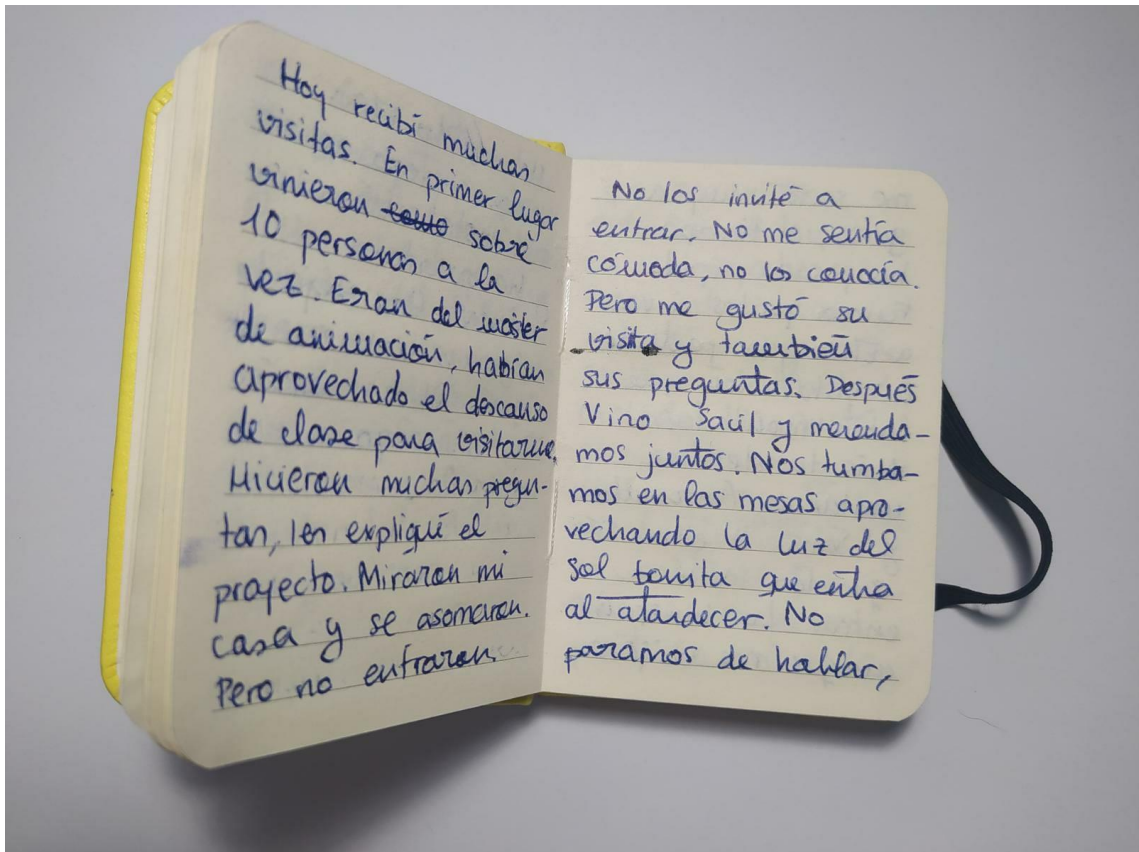 Hoy recibí muchas
visitas. En primer lugar
vinieron como sobre
10 personas a la
vez. Eran del máster
de animación, habían
aprovechado el descanso
de clase para visitarme.
Hicieron muchas pregun-
tas, les expliqué el
proyecto. Miraron mi
casa y se asomaron.
Pero no entraron
No los invité a
entrar. No me sentía
cómoda, no los conocía.
Pero me gustó su
visita y también
sus preguntas. Después
Vino Saúl y merenda-
mos juntos. Nos tumba-
mos en las mesas apro-
vechando la luz del
sol bonita que entra
al atardecer. No
paramos de hablar,